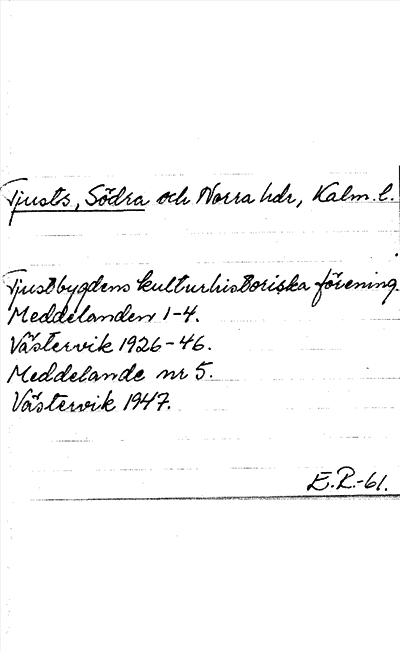 Tjusts, Södra och Norra hdr, Kalm. l.
Tjustbygdens kulturhistoriska förening.
Meddelanden 1-4.
Västervik 1926-46.
Meddelande nr 5.
Västervik 1947.
E.R.-61.